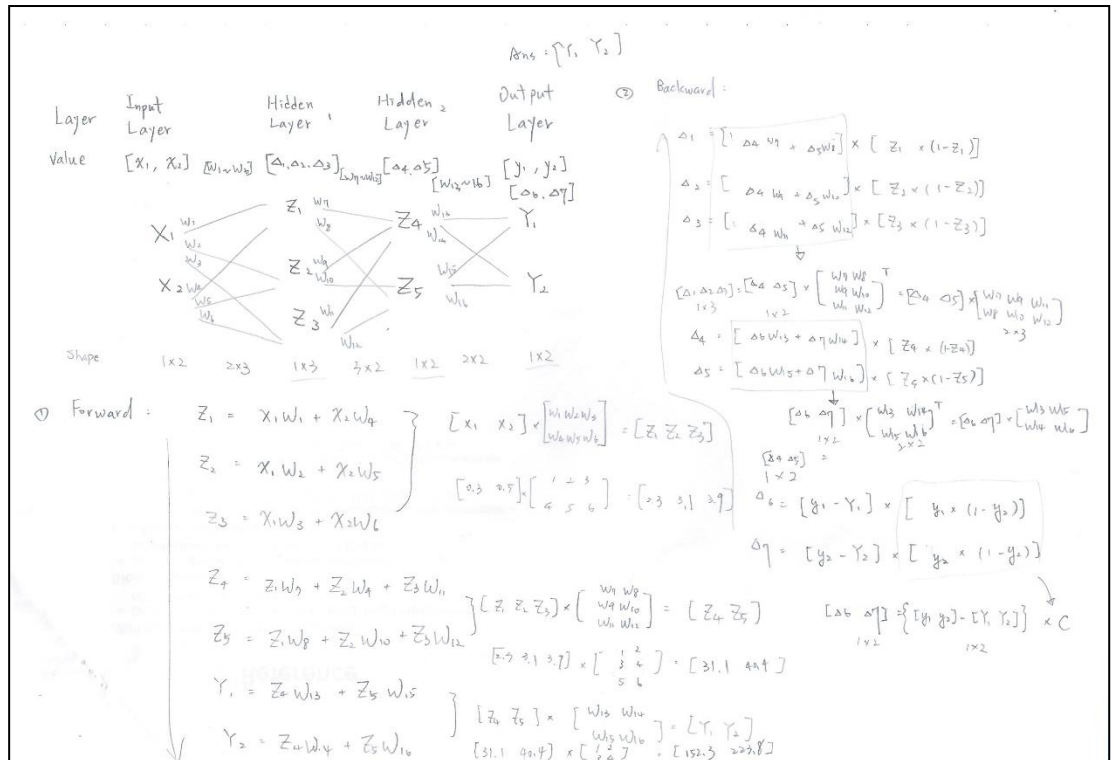 Ans : [Y₁ Y₂]
Layer Input Layer Hidden Layer 1 Hidden Layer 2 Output Layer
Value [X₁, X₂] [W₁~W₆] [Δ₁, Δ₂, Δ₃] [W₇~W₁₂] [Δ₄, Δ₅] [W₁₃~16] [y₁, y₂]
[Δ₆, Δ₇]
X₁ W₁ W₂ W₃ Z₁ W₇ W₈ Z₄ W₁₃ W₁₄ Y₁
X₂ W₄ W₅ W₆ Z₂ W₉ W₁₀ Z₅ W₁₅ W₁₆ Y₂
Z₃ W₁₁ W₁₂
Shape 1×2 2×3 1×3 3×2 1×2 2×2 1×2
① Forward :
Z₁ = X₁W₁ + X₂W₄
Z₂ = X₁W₂ + X₂W₅
Z₃ = X₁W₃ + X₂W₆
[X₁ X₂] × [W₁ W₂ W₃
W₄ W₅ W₆] = [Z₁ Z₂ Z₃]
[0.3 0.5] × [1 2 3
4 5 6] = [2.3 3.1 3.9]
Z₄ = Z₁W₇ + Z₂W₉ + Z₃W₁₁
Z₅ = Z₁W₈ + Z₂W₁₀ + Z₃W₁₂
[Z₁ Z₂ Z₃] × [W₇ W₈
W₉ W₁₀
W₁₁ W₁₂] = [Z₄ Z₅]
[2.3 3.1 3.9] × [1 2
3 4
5 6] = [31.1 40.4]
Y₁ = Z₄W₁₃ + Z₅W₁₅
Y₂ = Z₄W₁₄ + Z₅W₁₆
[Z₄ Z₅] × [W₁₃ W₁₄
W₁₅ W₁₆] = [Y₁ Y₂]
[31.1 40.4] × [1 2
3 4] = [152.3 223.8]
② Backward :
Δ₁ = [Δ₄ W₇ + Δ₅W₈] × [Z₁ × (1-Z₁)]
Δ₂ = [Δ₄ W₉ + Δ₅ W₁₀] × [Z₂ × (1-Z₂)]
Δ₃ = [Δ₄ W₁₁ + Δ₅ W₁₂] × [Z₃ × (1-Z₃)]
[Δ₁ Δ₂ Δ₃] = [Δ₄ Δ₅] × [W₇ W₈
W₉ W₁₀
W₁₁ W₁₂]ᵀ = [Δ₄ Δ₅] × [W₇ W₉ W₁₁
W₈ W₁₀ W₁₂]
1×3 1×2 2×3
Δ₄ = [Δ₆W₁₃ + Δ₇W₁₄] × [Z₄ × (1-Z₄)]
Δ₅ = [Δ₆W₁₅ + Δ₇W₁₆] × [Z₅ × (1-Z₅)]
[Δ₆ Δ₇] × [W₁₃ W₁₄
W₁₅ W₁₆]ᵀ = [Δ₆ Δ₇] × [W₁₃ W₁₅
W₁₄ W₁₆]
1×2 2×2
[Δ₄ Δ₅] =
1×2
Δ₆ = [y₁ - Y₁] × [y₁ × (1-y₂)]
Δ₇ = [y₂ - Y₂] × [y₂ × (1-y₂)]
[Δ₆ Δ₇] = {[y₁ y₂] - [Y₁ Y₂]} × C
1×2 1×2